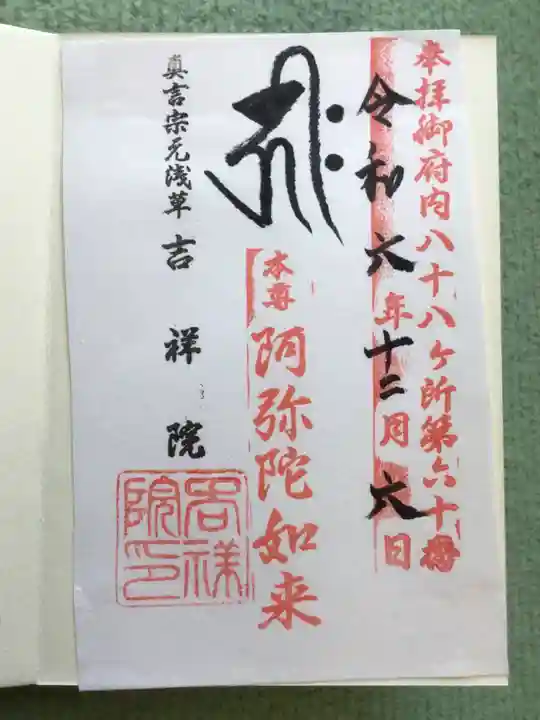 奉拝御府内八十八ヶ所第六十番
令和六年十二月六日
𑖮𑖿𑖨𑖱𑖾
本尊 阿弥陀如来
真言宗元浅草 吉祥院
吉祥院印